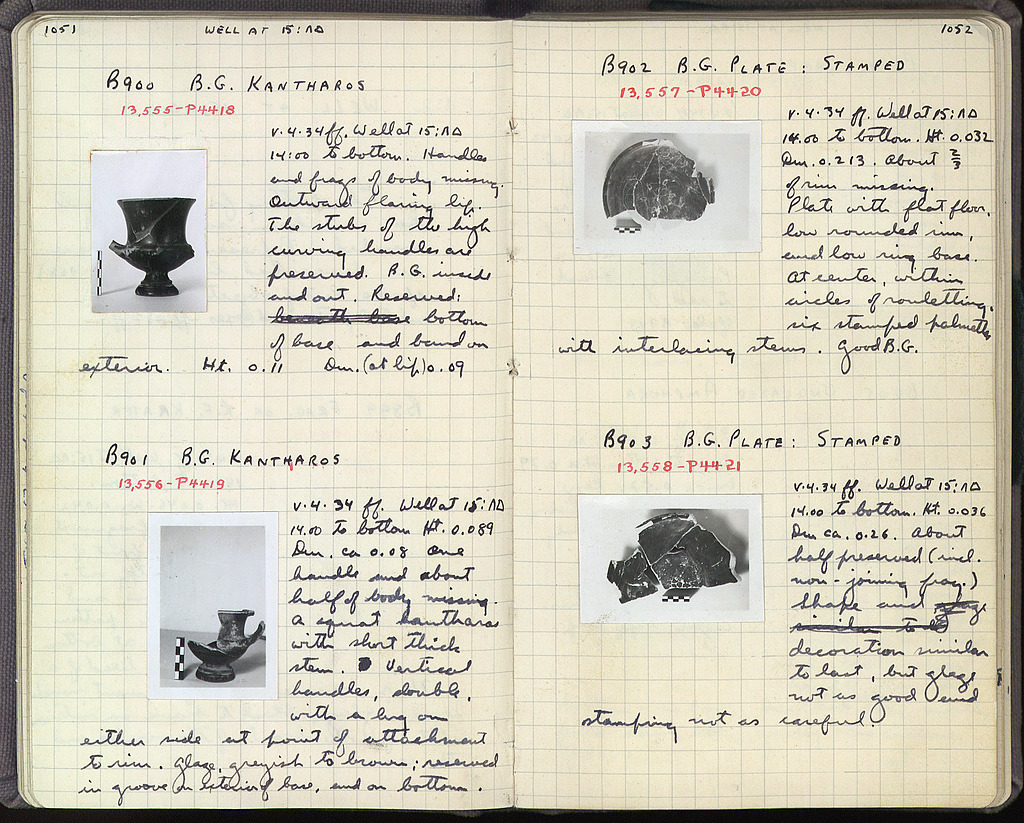 1051 WELL AT 15:ΛΔ
B900 B.G. KANTHAROS
13,555-P4418
V.4.34 ff. Well at 15:ΛΔ
14:00 to bottom. Handles
and frags of body missing.
Outward flaring lip.
The stubs of the high
curving handles are
preserved. B.G. inside
and out. Reserved:
beneath base bottom
of base and band on
exterior. Ht. 0.11 Dm. (at lip) 0.09
B901 B.G. KANTHAROS
13,556-P4419
V.4.34 ff. Well at 15:ΛΔ
14.00 to bottom Ht. 0.089
Dm. ca 0.08 One
handle and about
half of body missing.
A squat kantharos
with short thick
stem. Vertical
handles, double,
with a lug on
either side at point of attachment
to rim. Glaze, greyish to brown; reserved
in groove on exterior of base, and on bottom.
1052
B902 B.G. PLATE: STAMPED
13,557-P4420
V.4.34 ff. Well at 15:ΛΔ
14.00 to bottom. Ht. 0.032
Dm. 0.213. About 2/3
of rim missing.
Plate with flat floor,
low rounded rim,
and low ring base.
At center, within
circles of rouletting,
six stamped palmettes
with interlacing stems. Good B.G.
B903 B.G. PLATE: STAMPED
13,558-P4421
V.4.34 ff. Well at 15:ΛΔ
14.00 to bottom. Ht. 0.036
Dm ca. 0.26. About
half preserved (incl.
non-joining frag.)
Shape and
similar to
decoration similar
to last, but glaze
not as good and
stamping not as careful.